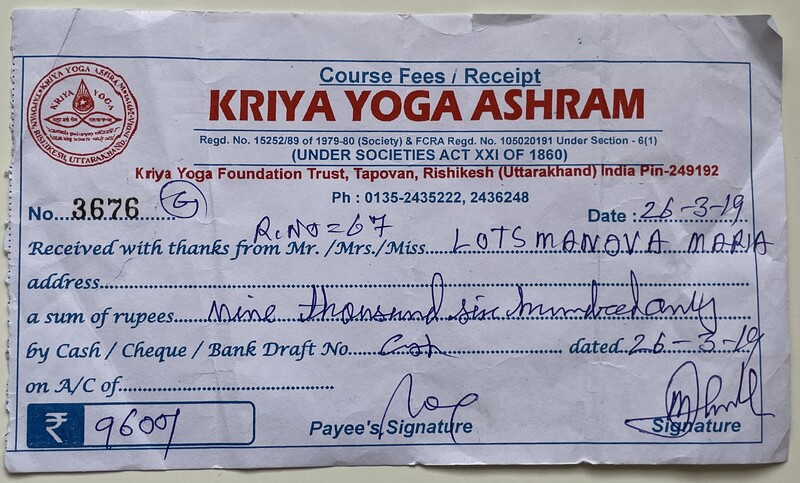 Course Fees / Receipt
KRIYA YOGA ASHRAM
Regd. No. 15252/89 of 1979-80 (Society) & FCRA Regd. No. 105020191 Under Section - 6(1)
(UNDER SOCIETIES ACT XXI OF 1860)
Kriya Yoga Foundation Trust, Tapovan, Rishikesh (Uttarakhand) India Pin-249192
Ph : 0135-2435222, 2436248
No. 3676 G
Date : 26-3-19
R.NO=67
Received with thanks from Mr. /Mrs./Miss LOTSMANOVA MARIA
address
a sum of rupees nine thousund six hundred only
by Cash / Cheque / Bank Draft No. dated 26-3-19
on A/C of
₹ 9600/
Payee's Signature
Signature
KRIYA YOGA
RISHIKESH, UTTARAKHAND